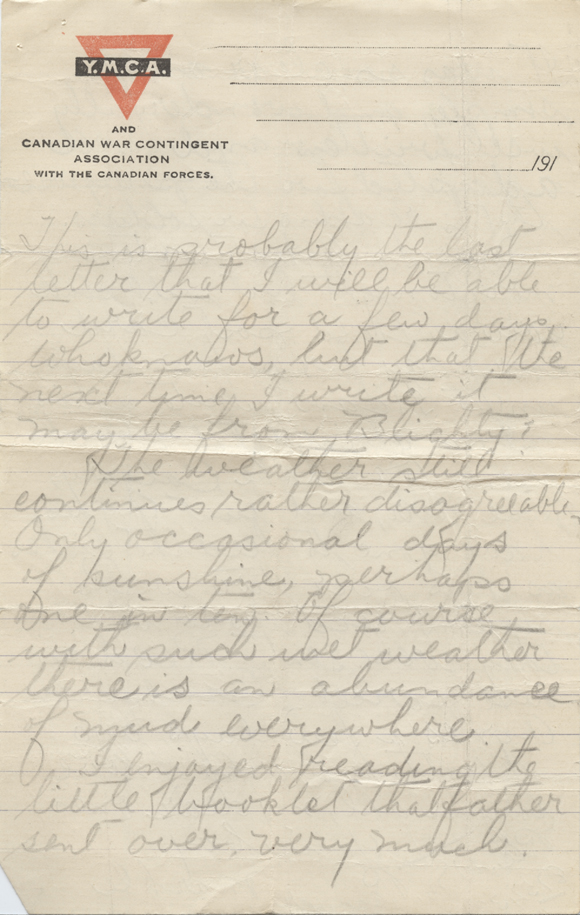 Y.M.C.A.
AND
CANADIAN WAR CONTINGENT
ASSOCIATION
WITH THE CANADIAN FORCES.
191
This is probably the last
letter that I will be able
to write for a few days.
Who knows, but that the
next time I write it
may be from "Blighty"?
The weather still
continues rather disagreeable.
Only occasional days
of sunshine, perhaps
one in ten. Of course
with such wet weather
there is an abundance
of mud everywhere
I enjoyed reading the
little booklet that father
sent over, very much.